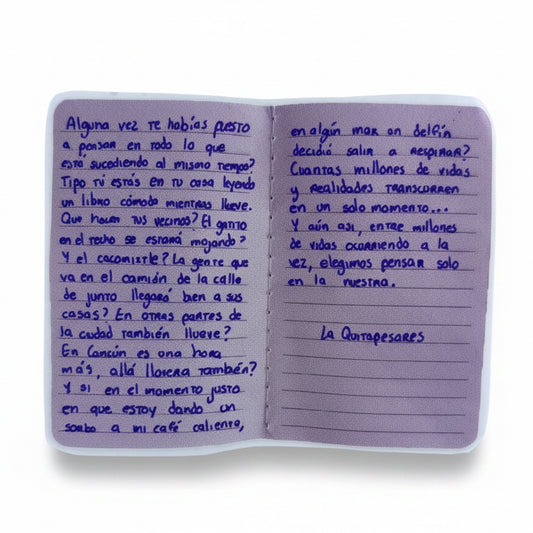 Alguna vez te habías puesto
a pensar en todo lo que
está sucediendo al mismo tiempo?
Tipo tú estás en tu casa leyendo
un libro cómodo mientras llueve.
Que hacen tus vecinos? El gatito
en el techo se estará mojando?
Y el cacomiztle? La gente que
va en el camión de la calle
de junto llegará bien a sus
casas? En otras partes de
la ciudad también llueve?
En Cancún es una hora
más, allá llovera también?
Y si en el momento justo
en que estoy dando un
sorbo a mi café caliente,
en algún mar un delfín
decidió salir a respirar?
Cuantas millones de vidas
y realidades transcurren
en un solo momento...
Y aún asi, entre millones
de vidas ocurriendo a la
vez, elegimos pensar solo
en la nuestra.
La Quitapesares